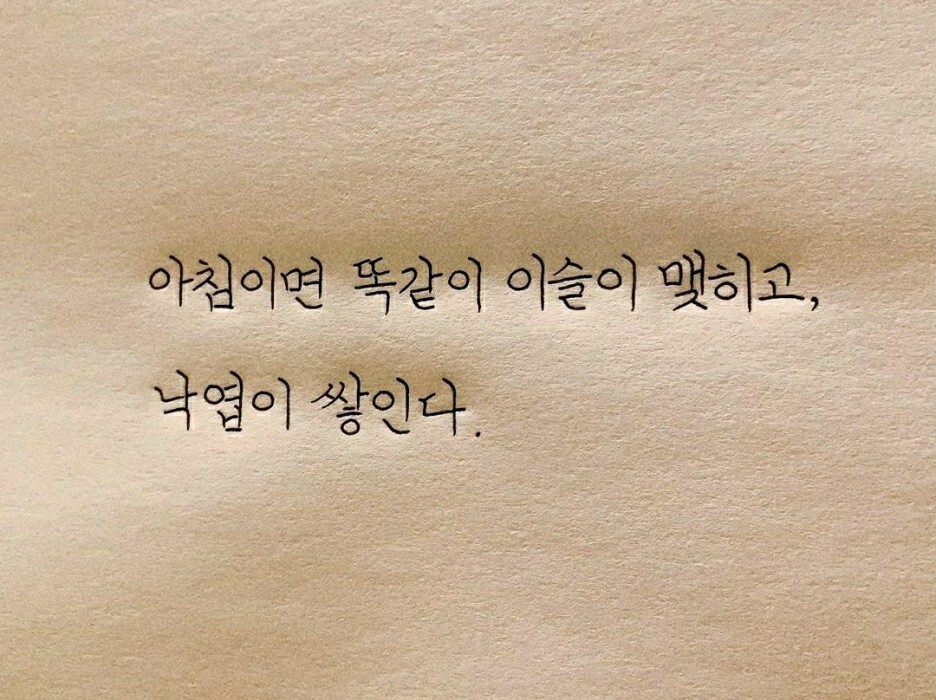 아침이면 똑같이 이슬이 맺히고,
낙엽이 쌓인다.